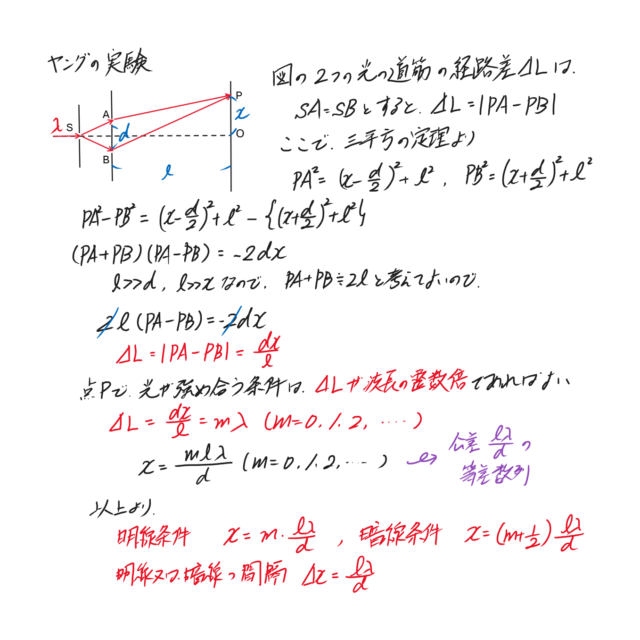 ヤングの実験
λ S A B d l P x O
図の2つの光の道筋の経路差ΔLは、
SA=SBとすると、ΔL=|PA-PB|
ここで、三平方の定理より
PA²=(x-d/2)²+l², PB²=(x+d/2)²+l²
PA²-PB²=(x-d/2)²+l²-{(x+d/2)²+l²}
(PA+PB)(PA-PB)=-2dx
l>>d, l>>xなので、PA+PB≒2lと考えてよいので、
2l(PA-PB)=-2dx
ΔL=|PA-PB|=dx/l
点Pで、光が強め合う条件は、ΔLが波長の整数倍であればよい
ΔL=dx/l=mλ (m=0,1,2,‥‥)
x=mlλ/d (m=0,1,2,‥‥) ↪ 公差lλ/dの
等差数列
以上より、
明線条件 x=m・lλ/d , 暗線条件 x=(m+1/2)lλ/d
明線又は暗線の間隔 Δx=lλ/d